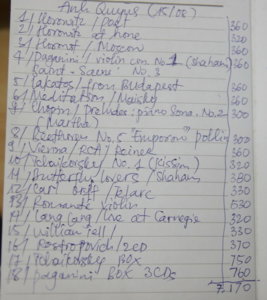 Anh Quyns (15/08)
1/ Horowitz / poet 360
2/ Horowitz at home 320
3/ Horowitz / Moscow 360
4/ Paganini / violin con No 1 (Shaham) 360
Saint-Saens No. 3
5/ Lakatos / from Budapest 360
6/ Meditation / Maisky 260
7/ Chopin / Preludes, piano Sona. No.2 300
(Martha)
8/ Beethoven No. 5 "Emperor" Pollini 300
9/ Vienna / RCA / Reiner 360
10/ Tchaikovsky / No. 1 (Kissin) 320
11/ Butterfly lovers / Shaham 390
12/ Carl Orff / Telarc 330
13/ Romantic violin 530
14/ Lang Lang / live at Carnegie 320
15/ William Tell / 330
16/ Rostropovich / 2CD 370
17/ Tchaikovsky Box 750
18/ paganini Box 3CDs 760
7.170